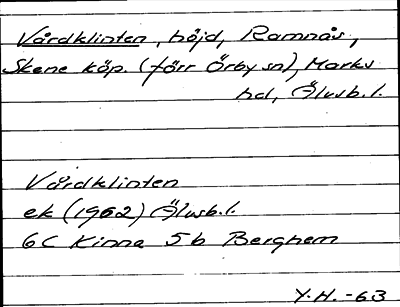 Vårdklinten, höjd, Ramnås,
Skene köp. (förr Örby sn), Marks
hd, Älvsb.l.
Vårdklinten
ek (1962) Älvsb.l.
6C Kinna 5b Berghem
Y.H. -63